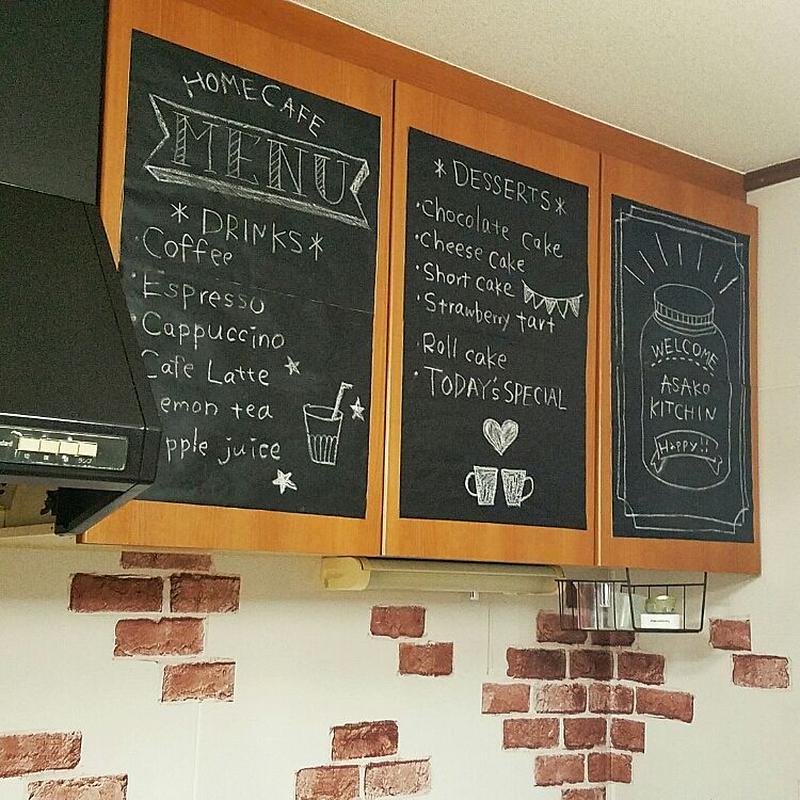 HOMECAFE
MENU
*DRINKS*
Coffee
Espresso
Cappuccino
Cafe Latte
emon tea
pple juice
*DESSERTS*
・Chocolate cake
・Cheese cake
・Short cake
・Strawberry tart
・Roll cake
・TODAY'S SPECIAL
WELCOME
ASAKO
KITCHIN
Happy!!